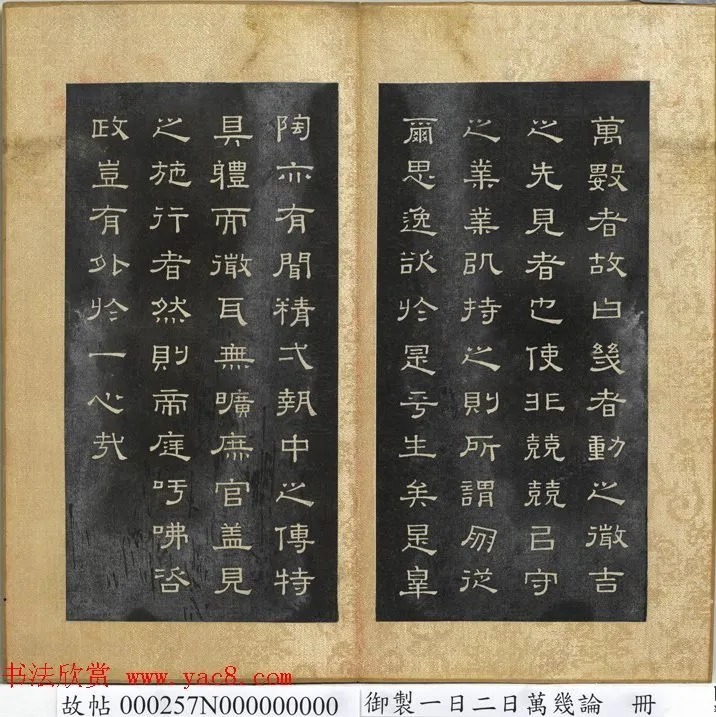 萬數者故曰幾者動之微吉
之先見者也使非兢兢㠯守
之業業㠯持之則所謂朋從
爾思逸欲於是乎生矣是皐
陶亦有聞精弌執中之傳特
具體而微耳無曠庶官盖見
之施行者然則帝庭吁咈咨
政豈有外於一心哉
书法欣赏 www.yac8.com
故帖 000257N000000000
御製一日二日萬幾論 冊